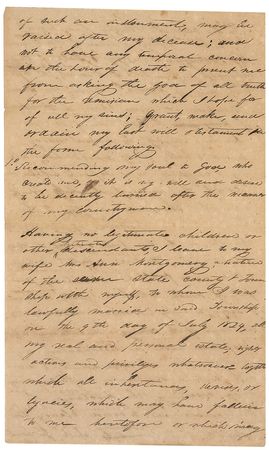 of such an instrument, may be
raised after my decease; and
not to have any temporal concern
at the hour of death to prevent me
from asking the God of all truth
for the remission which I hope for
of all my sins; Grant, make and
ordain my last will & testament in
the form following.
1.o Recommending my soul to God who
create me, it is my will and desire
to be decently buried after the manner
of my countrymen.
Having no legitimate children or
other descendants, I leave to my
wife Mrs Ann Montgomery a native
of the same state county & town
ship with myself, to whom I was
lawfully married in said Township
on the 9th day of July 1824, all
my real and personal estate, rights
actions and privileges whatsoever together
which all inheritances, or
legacies, which may have fallen
to me heretofore or which may